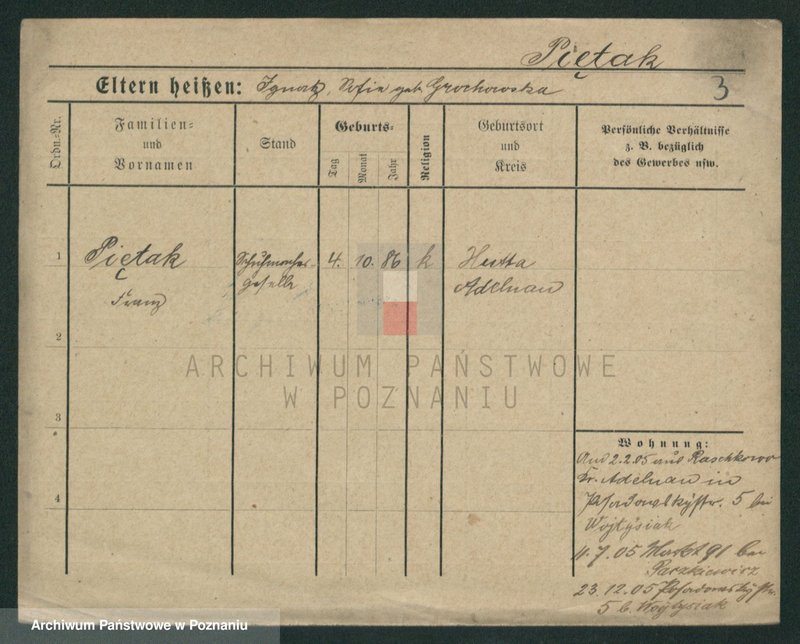 Piętak
Eltern heißen: Ignatz, Sofie geb. Grochowska
3
Ordn.=Nr.
Familien=
und
Vornamen
Stand
Geburts=
Tag
Monat
Jahr
Religion
Geburtsort
und
Kreis
Persönliche Verhältnisse
z. B. bezüglich
des Gewerbes usw.
1
Piętak
Franz
Schuhmacher-
geselle
4. 10. 86
k
Hutta
Adelnau
2
3
4
ARCHIWUM PAŃSTWOWE
W POZNANIU
Wohnung:
And 2.2.05 aus Raschkowo
Kr. Adelnau in
Posadowskystr. 5 bei
Wojtysiak
11.7.05 Markt 91 bei
Paczkiewicz
23.12.05 Posadowskystr.
5 b. Wojtysiak
Archiwum Państwowe w Poznaniu